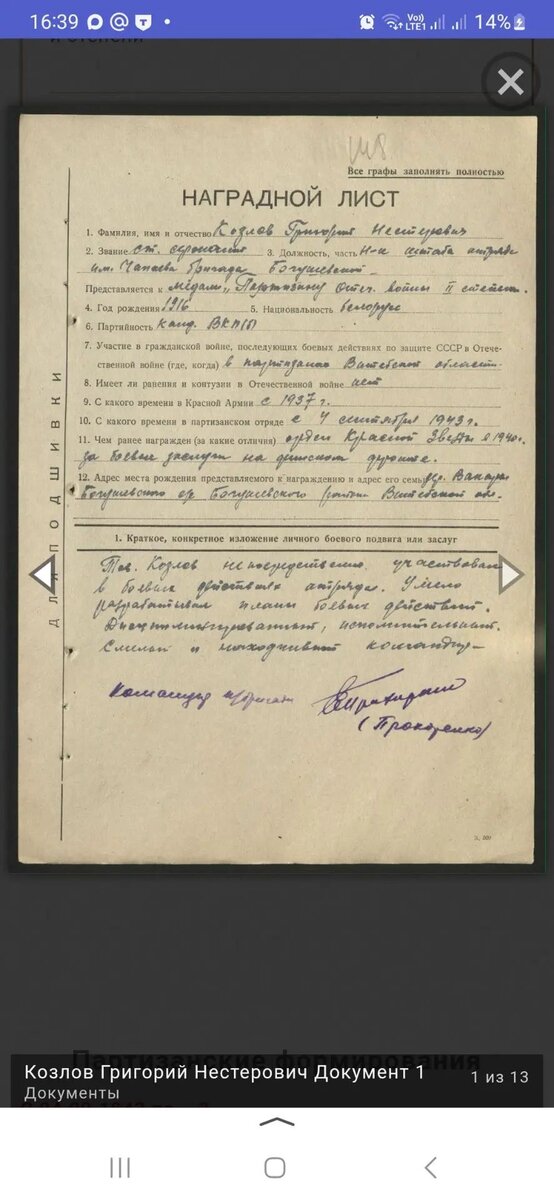 16:39
Vo))
LTE1
14%
и степени
118
Все графы заполнять полностью
НАГРАДНОЙ ЛИСТ
1. Фамилия, имя и отчество Козлов Григорий Нестерович
2. Звание ст. сержант 3. Должность, часть Н-к штаба отряда
им. Чапаева бригада Богушевской
Представляется к медали „Партизану Отеч. войны II степени
4. Год рождения 1916 5. Национальность белорус
6. Партийность канд. ВКП(б)
7. Участие в гражданской войне, последующих боевых действиях по защите СССР в Отече-
ственной войне (где, когда) в партизанах Витебской области
8. Имеет ли ранения и контузии в Отечественной войне нет
9. С какого времени в Красной Армии с 1937 г.
10. С какого времени в партизанском отряде с 4 сентября 1943 г.
11. Чем ранее награжден (за какие отличия) орден Красной Звезды в 1940 г.
за боевые заслуги на финском фронте.
12. Адрес места рождения представляемого к награждению и адрес его семьи дер.
Богушевского с/с Богушевского района Витебской обл.
1. Краткое, конкретное изложение личного боевого подвига или заслуг
Тов. Козлов непосредственно участвовал
в боевых действиях отряда. Умело
разрабатывал планы боевых действий.
Дисциплинированный, исполнительный.
Смелый и находчивый командир
Командир бригады
ДЛЯ ПОДШИВКИ
З. 801
Партизанские формирования
Козлов Григорий Нестерович Документ 1
1 из 13
Документы